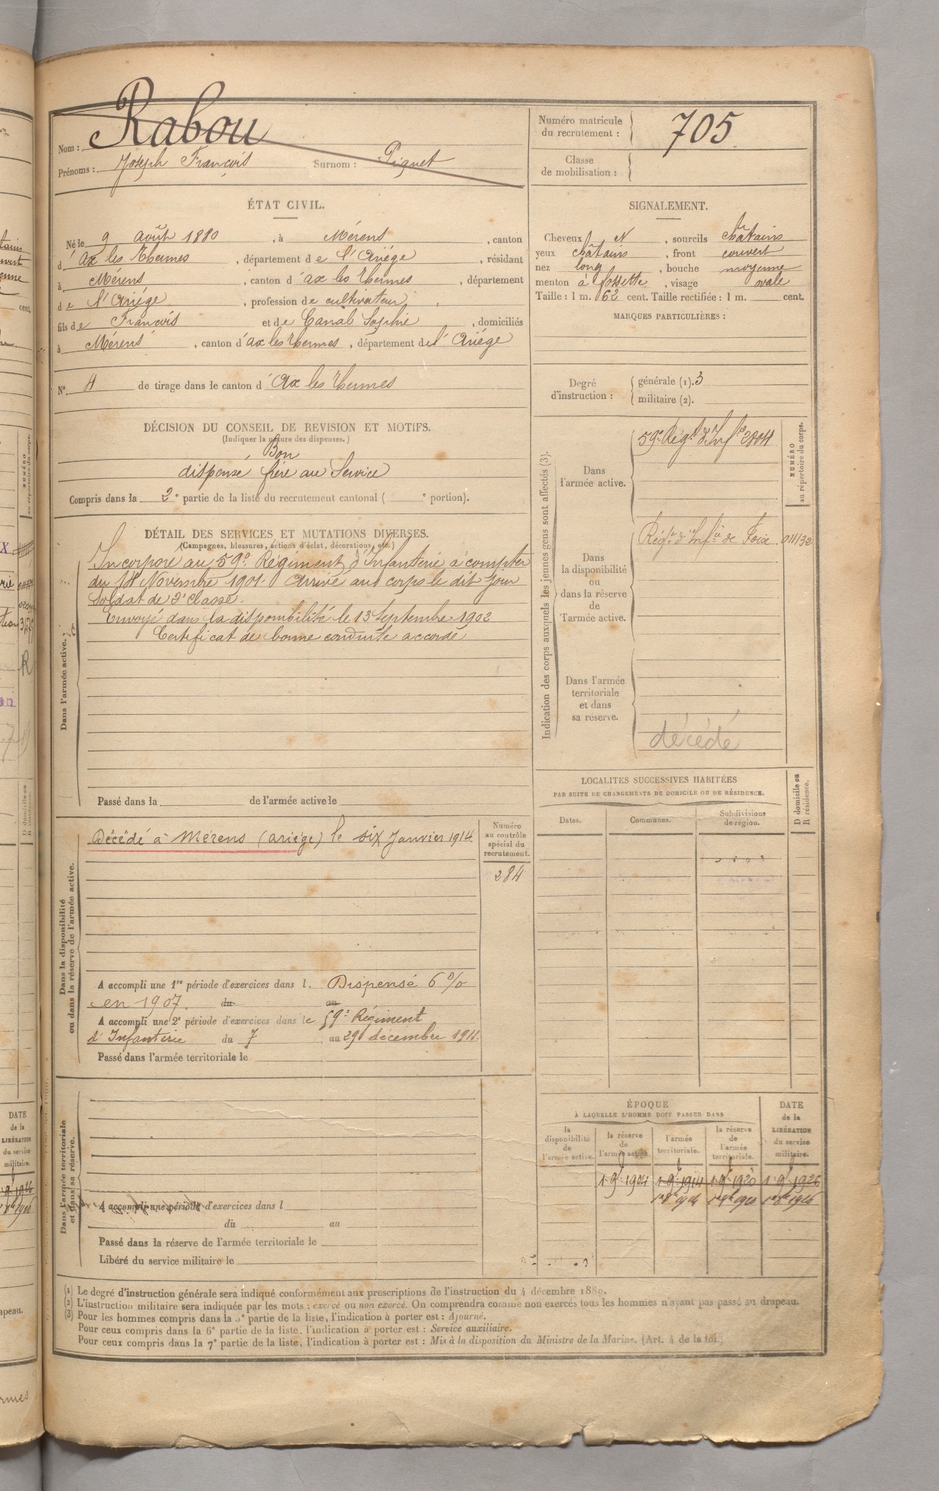 Nom : Rabou
Prénoms : Joseph François Surnom : Piquet
Numéro matricule du recrutement : 705
Classe de mobilisation :
ÉTAT CIVIL.
Né le 9 août 1880, à Mérens, canton
d'Ax les Thermes, département de l'Ariége, résidant
à Mérens, canton d'ax les Thermes, département
de l'Ariége, profession de cultivateur,
fils de François et de Canal Sophie, domiciliés
à Mérens, canton d'ax les Thermes, département de l'Ariége
N° 4 de tirage dans le canton d'Ax les Thermes
SIGNALEMENT.
Cheveux N, sourcils châtains
yeux châtains, front couvert
nez long, bouche moyenne
menton à fossette, visage ovale
Taille : 1 m. 62 cent. Taille rectifiée : 1 m. cent.
MARQUES PARTICULIÈRES :
Degré d'instruction : générale (1). 3
militaire (2).
DÉCISION DU CONSEIL DE REVISION ET MOTIFS.
(Indiquer la nature des dispenses.)
Bon
dispensé frère au Service
Compris dans la 2e partie de la liste du recrutement cantonal ( e portion).
DÉTAIL DES SERVICES ET MUTATIONS DIVERSES.
(Campagnes, blessures, actions d'éclat, décorations, etc.)
Dans l'armée active.
Incorporé au 59e Régiment d'Infanterie à compter
du Novembre 1901. Arrivé au corps le dit jour
soldat de 2e classe.
Envoyé dans la disponibilité le 13 Septembre 1902
Certificat de bonne conduite accordé
Passé dans la de l'armée active le
Indication des corps auxquels les jeunes gens sont affectés (3).
NUMÉRO au répertoire du corps.
Dans l'armée active.
59e Régt d'Inf
Dans la disponibilité ou dans la réserve de l'armée active.
Régt d'Infie de Foix
Dans l'armée territoriale et dans sa réserve.
décédé
LOCALITÉS SUCCESSIVES HABITÉES
PAR SUITE DE CHANGEMENTS DE DOMICILE OU DE RÉSIDENCE.
Dates. Communes. Subdivisions de région. D domicile ou R résidence.
Dans la disponibilité ou dans la réserve de l'armée active.
Décédé à Mérens (Ariège) le six Janvier 1914
Numéro au contrôle spécial du recrutement.
284
A accompli une 1re période d'exercices dans l. Dispensé 6 %
en 1907. du au
A accompli une 2e période d'exercices dans le 59e Régiment
d'Infanterie du 7 au décembre 1911.
Passé dans l'armée territoriale le
Dans l'armée territoriale et dans sa réserve.
A accompli une période d'exercices dans l
du au
Passé dans la réserve de l'armée territoriale le
Libéré du service militaire le
ÉPOQUE
À LAQUELLE L'HOMME DOIT PASSER DANS
DATE de la LIBÉRATION du service militaire.
la disponibilité de l'armée active. la réserve de l'armée active. l'armée territoriale. la réserve de l'armée territoriale.
1 9b 1904 1 9b 1914 1 9b 1920 1 9b 1926
(1) Le degré d'instruction générale sera indiqué conformément aux prescriptions de l'instruction du 4 décembre 1889.
(2) L'instruction militaire sera indiquée par les mots : exercé ou non exercé. On comprendra comme non exercés tous les hommes n'ayant pas passé au drapeau.
(3) Pour les hommes compris dans la 5e partie de la liste, l'indication à porter est : Ajourné.
Pour ceux compris dans la 6e partie de la liste, l'indication à porter est : Service auxiliaire.
Pour ceux compris dans la 7e partie de la liste, l'indication à porter est : Mis à la disposition du Ministre de la Marine. (Art. 4 de la loi.)